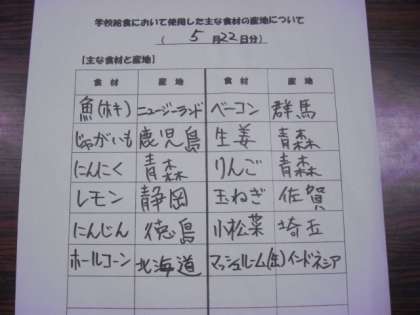 学校給食において使用した主な食材の産地について
( 5月22日分)
【主な食材と産地】
食材 産地 食材 産地
魚(ホキ) ニュージーランド ベーコン 群馬
じゃがいも 鹿児島 生姜 青森
にんにく 青森 りんご 青森
レモン 静岡 玉ねぎ 佐賀
にんじん 徳島 小松菜 埼玉
ホールコーン 北海道 マッシュルーム(缶) インドネシア